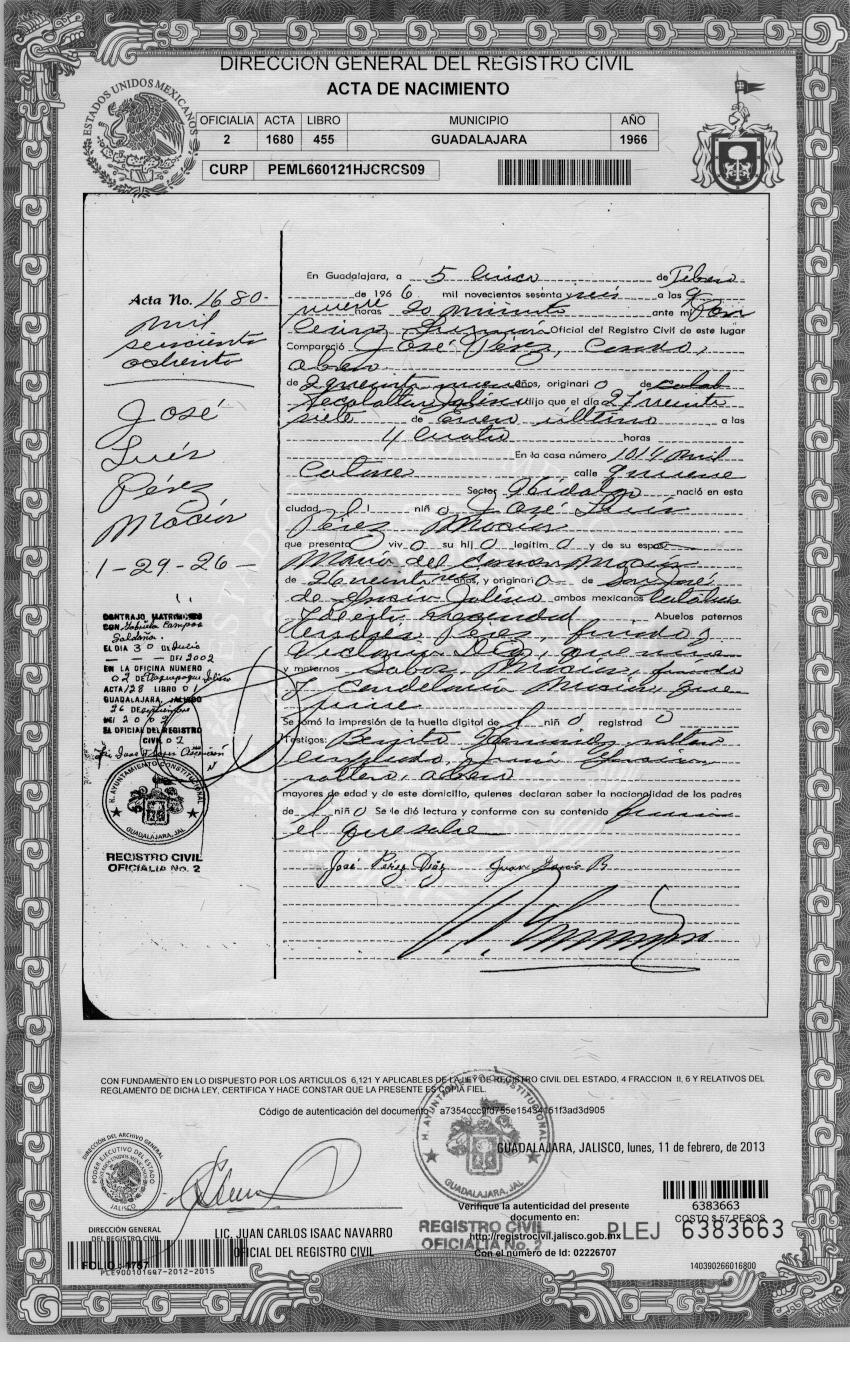 DIRECCION GENERAL DEL REGISTRO CIVIL
ACTA DE NACIMIENTO
ESTADOS UNIDOS MEXICANOS
OFICIALIA ACTA LIBRO MUNICIPIO AÑO
2 1680 455 GUADALAJARA 1966
CURP PEML660121HJCRCS09
Acta No. 1680-
mil
seiscientos
ochenta
José
Luis
Pérez
Macías
1-29-26-
CONTRAJO MATRIMONIO
CON Gabriela Campos
Saldaña.
EL DIA 30 DE Julio
DEL 2002
EN LA OFICINA NUMERO
02 DE Tlaquepaque Jalisco
ACTA 128 LIBRO 01
GUADALAJARA, JALISCO
26 DE
DEL 2002
EL OFICIAL DEL REGISTRO
CIVIL 02
H. AYUNTAMIENTO CONSTITUCIONAL
GUADALAJARA, JAL
REGISTRO CIVIL
OFICIALIA No. 2
En Guadalajara, a 5 Cinco de Febrero
de 1966 mil novecientos sesenta y seis a las 9
nueve horas 20 minutos ante mi Don
Oficial del Registro Civil de este lugar
Compareció José Pérez, casado,
obrero
de años, originario de
dijo que el día 27 veinti
siete de Enero último a las
4 Cuatro horas
En la casa número 1014 mil
Catorce calle 9 nueve
Sector Hidalgo nació en esta
ciudad, el niño José Luis
Pérez Macías
que presento vivo su hijo legítimo y de su esposa
María del Carmen Macías
de 26 años, y originario de San José
de Gracia Jalisco ambos mexicanos Católicos
y de esta vecindad Abuelos paternos
Pérez, finado y
Victoriana Díaz, que vive
y maternos Macías, finado
y Candelaria Macías, que
vive
Se tomó la impresión de la huella digital del niño registrado
Testigos: Benito soltero
empleado, Juan García
soltero, obrero
mayores de edad y de este domicilio, quienes declaran saber la nacionalidad de los padres
del niño Se le dió lectura y conforme con su contenido firmaron
el que sabe
José Pérez Díaz Juan García B
CON FUNDAMENTO EN LO DISPUESTO POR LOS ARTICULOS 6,121 Y APLICABLES DE LA LEY DE REGISTRO CIVIL DEL ESTADO, 4 FRACCION II, 6 Y RELATIVOS DEL
REGLAMENTO DE DICHA LEY, CERTIFICA Y HACE CONSTAR QUE LA PRESENTE ES COPIA FIEL.
Código de autenticación del documento:
H. AYUNTAMIENTO CONSTITUCIONAL
GUADALAJARA, JAL
REGISTRO CIVIL
OFICIALIA No. 2
GUADALAJARA, JALISCO, lunes, 11 de febrero, de 2013
DIRECCIÓN DEL ARCHIVO GENERAL
PODER EJECUTIVO DEL ESTADO
JALISCO
DIRECCIÓN GENERAL
DEL REGISTRO CIVIL
LIC. JUAN CARLOS ISAAC NAVARRO
OFICIAL DEL REGISTRO CIVIL
Verifique la autenticidad del presente
documento en:
http://registrocivil.jalisco.gob.mx
Con el número de Id: 02226707
6383663
COSTO $ 57 PESOS
PLEJ 6383663
140390266016800
FOLIO: 1787
PLE900101687-2012-2015